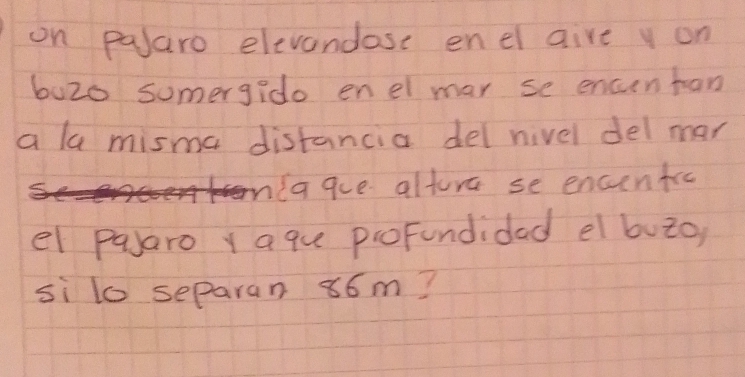 on pajaro elevandose en el aire y on
buzo sumergido en el mar se encuentran
a la misma distancia del nivel del mar
¿a que altura se encuentra
el pajaro y a que profundidad el buzo,
si lo separan 86 m?